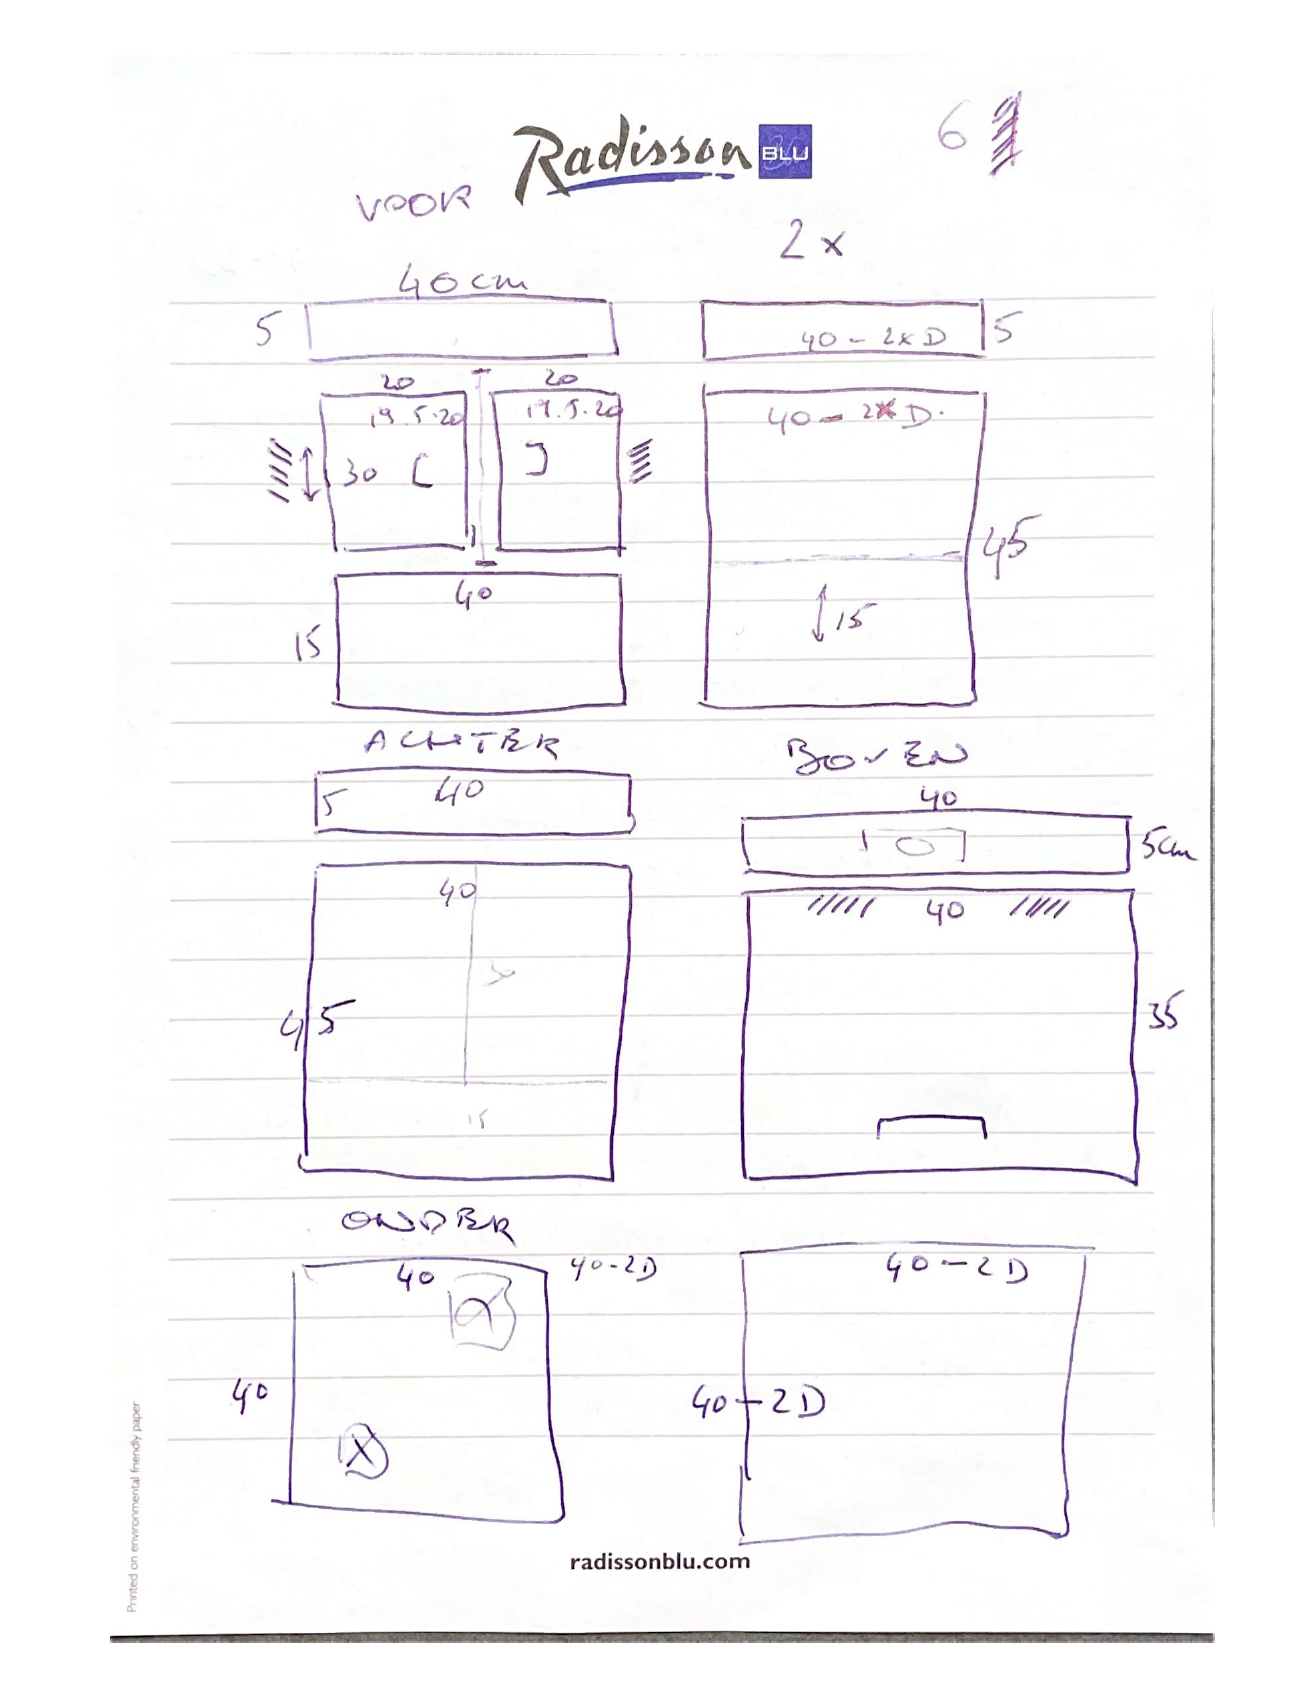 6
Radisson BLU
VOOR
2x
40cm
5
40 - 2x D
5
20
20
19.5·20
19.5·20
40 - 2x D.
30
45
40
15
15
ACHTER
BOVEN
5
40
40
5cm
40
40
45
35
15
ONDER
40
40-2D
40 - 2D
40
40 - 2D
radissonblu.com
Printed on environmental friendly paper